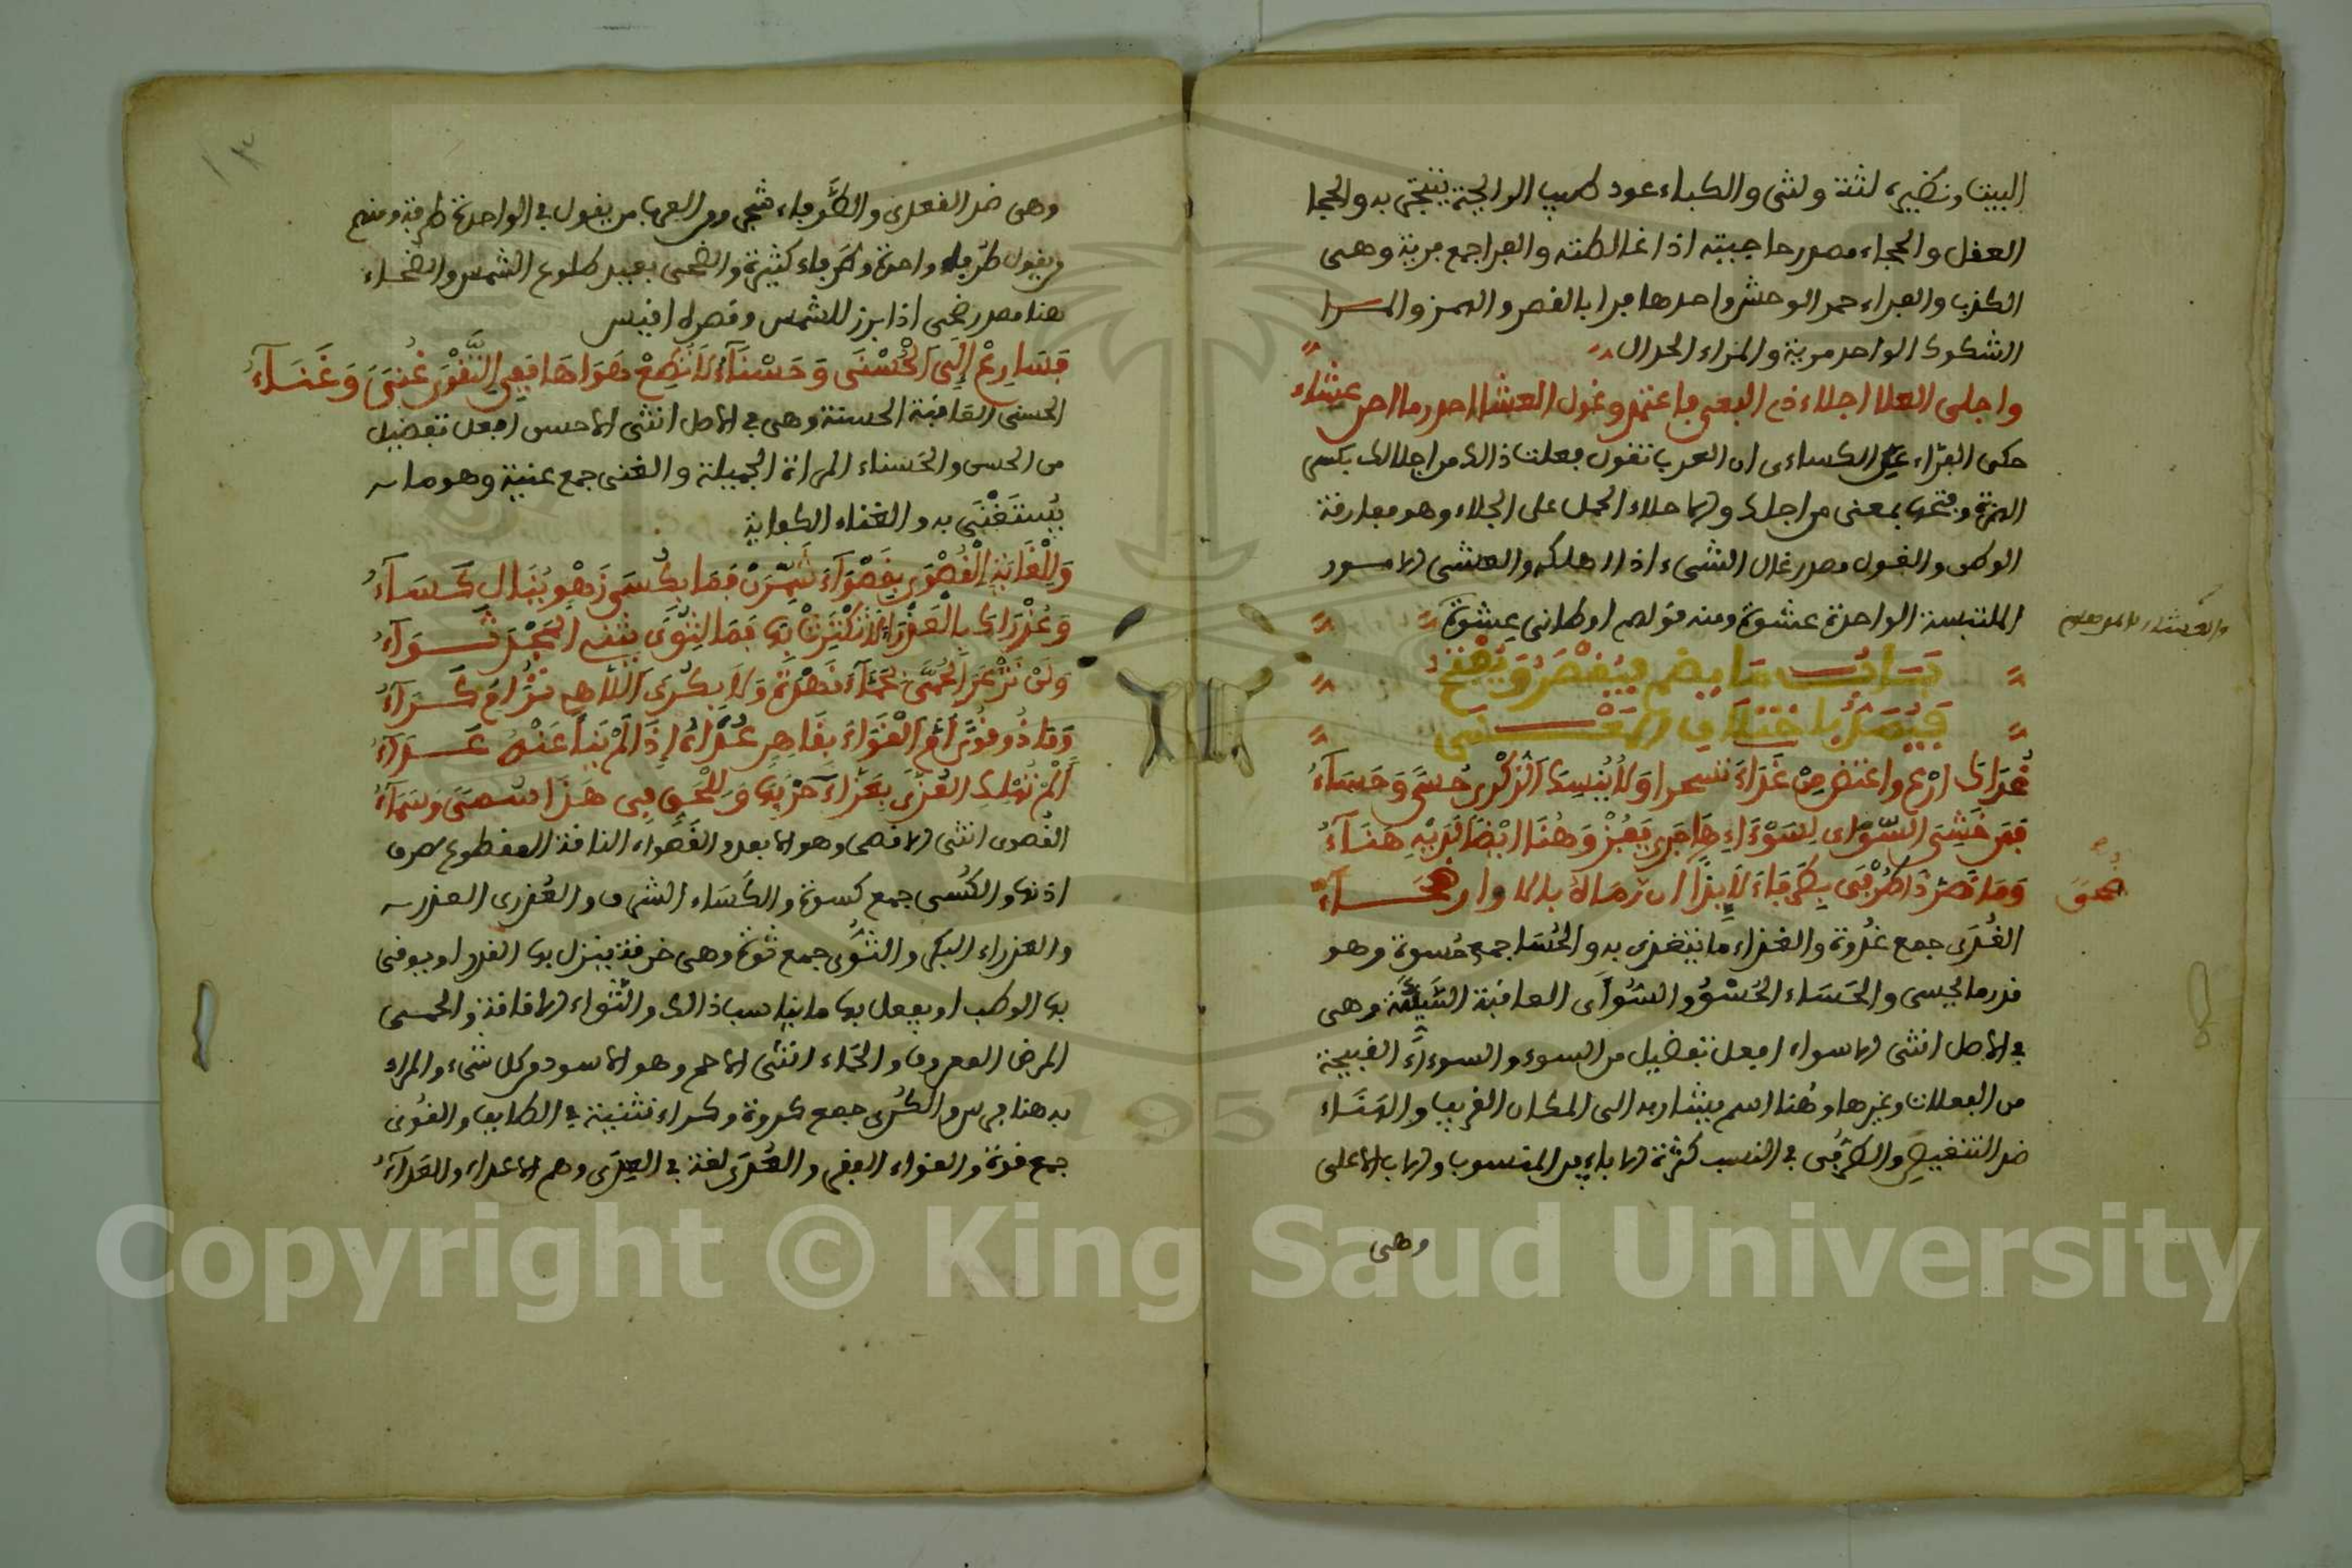 البيت ونظيره لثة ولثى والكباء عود طيب الرايحة يتبخر به والحجا
العفل والحجاء مصدر حاجيته اذا غالطته والفرا جمع فرية وهى
الكذب والفراء حمر الوحش واحدها فرا بالقصر والهمز والمرا
الشكوك الواحد مرية والمراء الجدال
واجلى العلا اجلاء ذى البغى فاعتمد وغول العشا احذر ما احر عشاء
حكى الفراء عن الكساءى ان العرب تقول فعلت ذالك من اجلالك بكسر
الهمزة وفتحها بمعنى من اجلك والاجلاء الحمل على الجلاء وهو مفارقة
الوطن والغول مصدر غال الشىء اذا اهلكه والعشى الامور
الملتبسة الواحدة عشوة ومنه قولهم اوطانى عشوة
والعشاء الامر معلوم
باب ما يضم فيقصر ويفتح
فيمد باختلاف المعنى
غداك ارع واعتض من غداء تسحرا ولا ينسك الذكرى حسى وحساء
فمن خشى السوأى لسوءاء هاجرى يفز وهنا ابضا لديه هناء
وما قصر ذا طربى بطرفاء لا بذا ان رماه بالاوار ضحاء
ضحى
الغدى جمع غدوة والغداء ما يتغدى به والحسا جمع حسوة وهو
قدر ما يحسى والحساء الحسو والسوأى العاقبة السيئة وهى
فى الاصل انثى الاسواء افعل تفضيل من السوء والسوءاء القبيحة
من الفعلات وغيرها وهنا اسم يشار به الى المكان القريب والهناء
ضد التنغيص والطربى فى النسب كثرة الاباء بين المنسوب والاب الاعلى
وهى
وهى ضد القعدى والطرفاء شجر ومن العرب من يقول فى الواحدة طرفة ومنهم
من يقول طرفاء واحدة وطرفاء كثيرة والضحى بعيد طلوع الشمس والضحاء
هنا مصدر ضحى اذا برز للشمس وقصره افيس
فسارع الى الحسنى وحسناء لا تطع هواها ففى التقوى غنى وغناء
الحسنى العاقبة الحسنة وهى فى الاصل انثى الاحسن افعل تفضيل
من الحسن والحسناء المراة الجميلة والغنى جمع غنية وهو ما
يستغنى به والغناء الكفاية
وللغاية القصوى بقصواء شمرن فما بكسى زهو ينال كساء
وعذراك بالعذراء لا تكثرن بها فما لثوى يثنه المجد ثواء
ولن تذعر الحمى لحماء نهدة ولا بكرى اللاهى ترام كراء
وما ذو قوى ام القواء بقاهر عداه اذا لم ينا عنه عداء
الم تهلك العزى بعزاء حزبها وللحق فى هذا سمى وسماء
القصوى انثى الاقصى وهو الابعد والقصواء الناقة المقطوع طرف
اذنها والكسى جمع كسوة والكساء الشرف والعذرى العذر
والعذراء البكر والثوى جمع ثوة وهى خرقة ينزل بها القدر او يوقى
بها الوطب او يفعل بها ما يناسب ذالك والثواء الاقامة والحمى
المرض المعروف والحماء انثى الاحم وهو الاسود من كل شىء والمراد
به هنا فرس والكرى جمع كروة وكراء ثنية فى الطايف والقوى
جمع قوة والقواء القفر والعدى لغة فى العدى وهم الاعداء والعداء